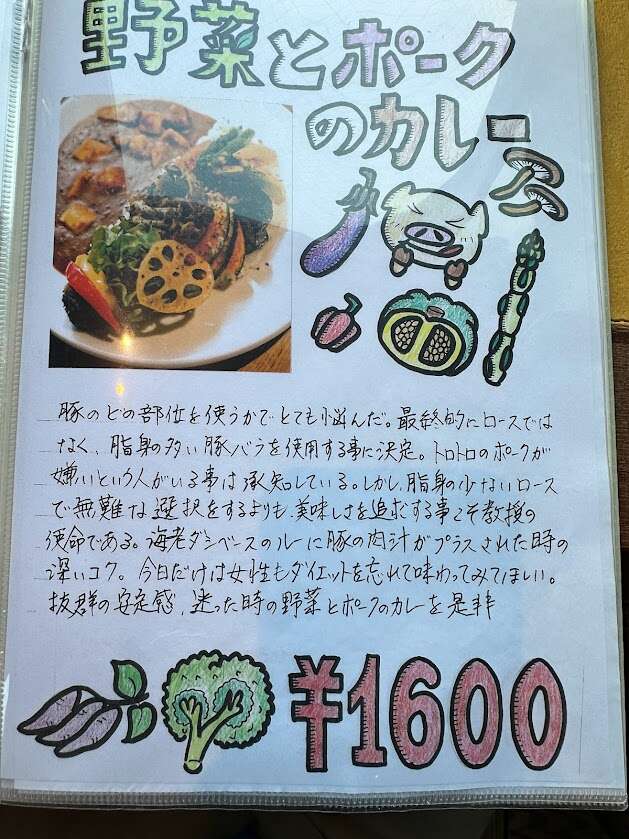 野菜とポーク
のカレー
豚のどの部位を使うかでとても悩んだ。最終的にロースでは
なく、脂身の多い豚バラを使用する事に決定。トロトロのポークが
嫌いという人がいる事は承知している。しかし、脂身の少ないロース
で無難な選択をするよりも、美味しさを追求する事こそ教授の
使命である。海老ダシベースのルーに豚の肉汁がプラスされた時の
深いコク。今日だけは女性もダイエットを忘れて味わってみてほしい。
抜群の安定感、迷った時の野菜とポークのカレーを是非
¥1600